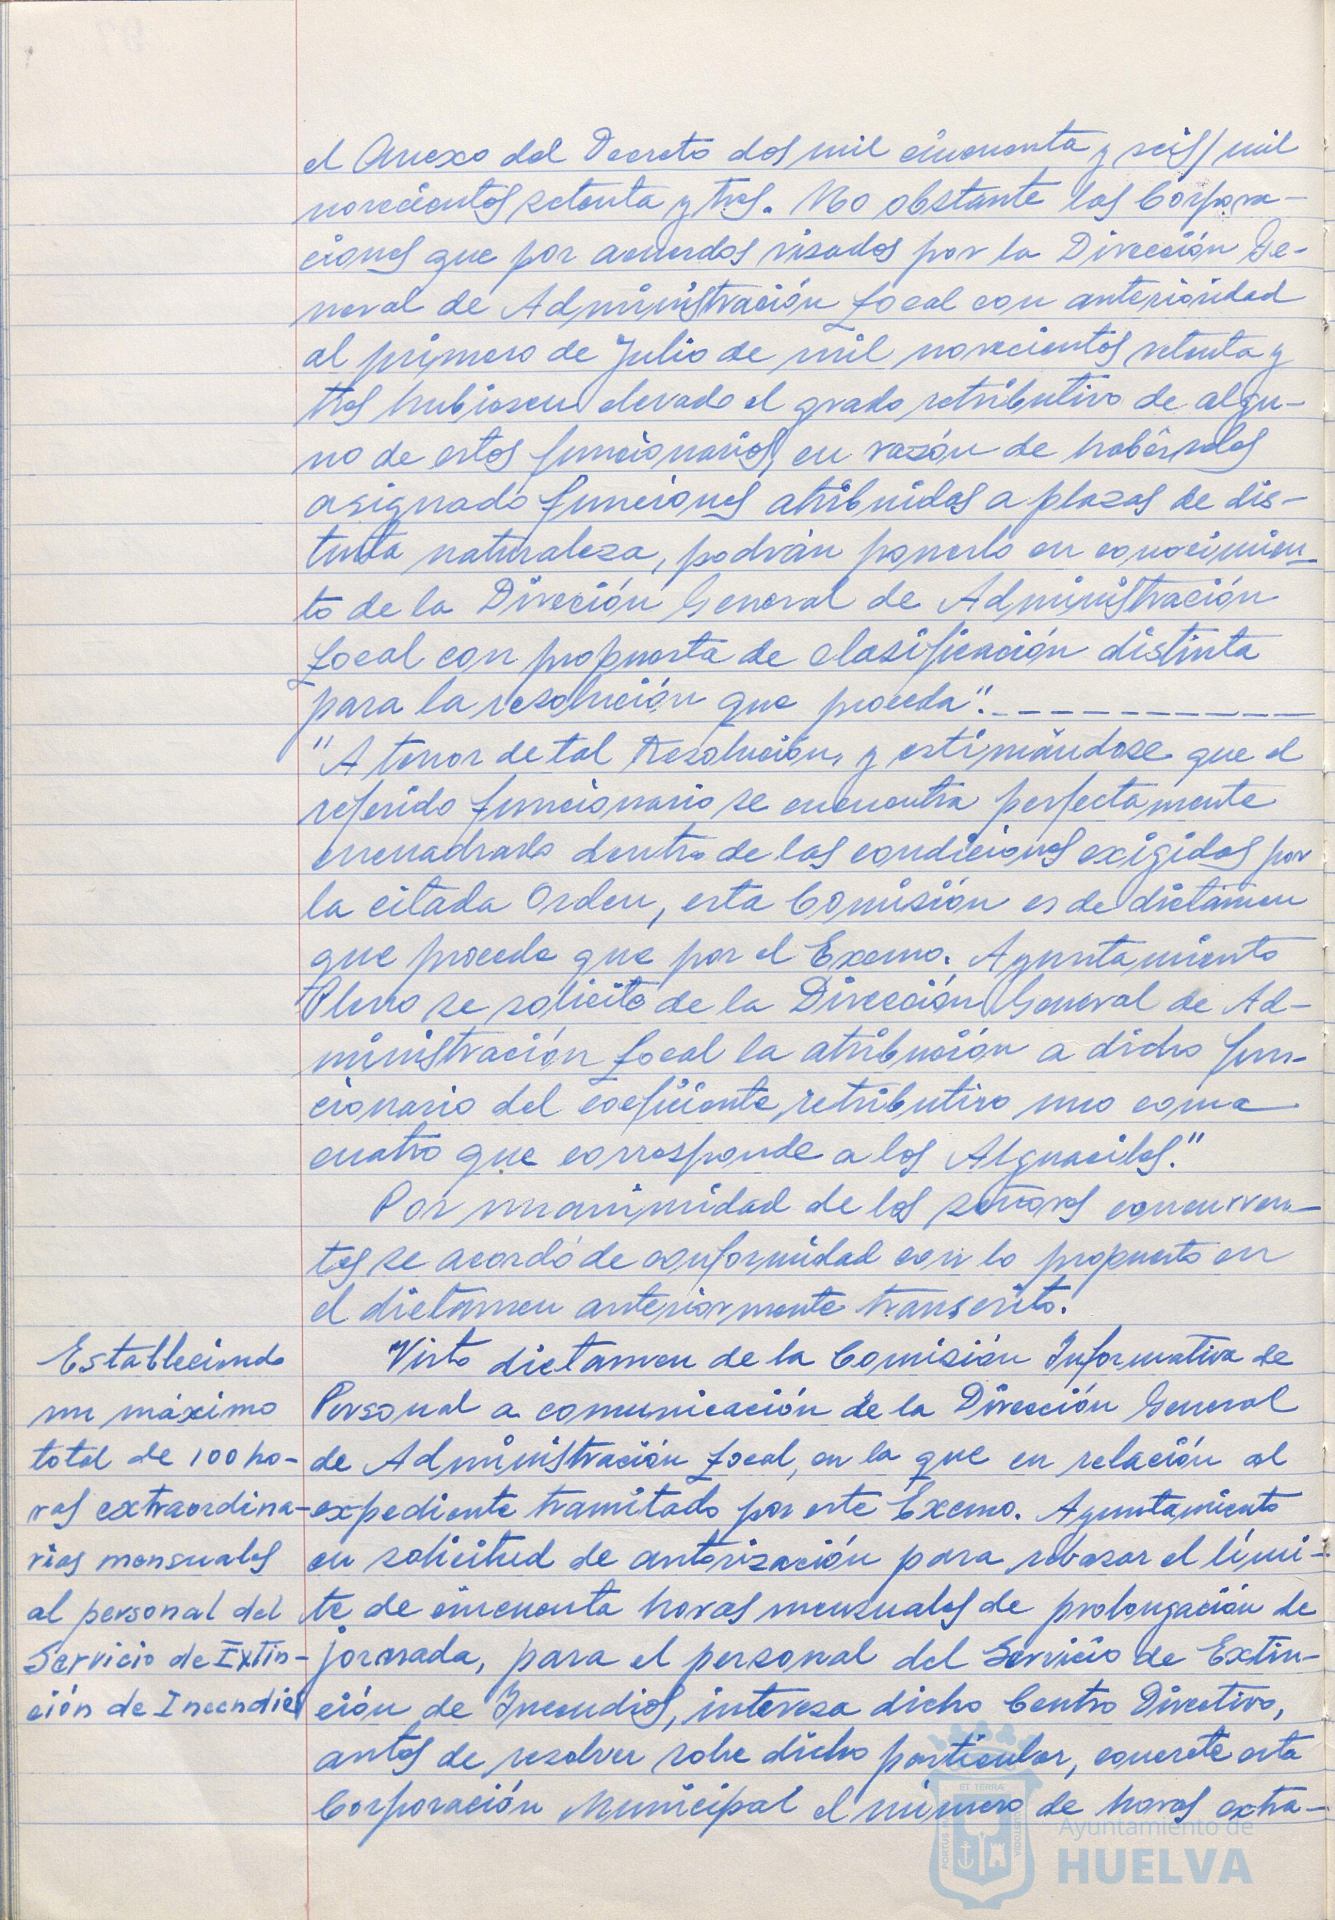 el Anexo del Decreto dos mil cincuenta y seis/mil
novecientos setenta y tres. No obstante las Corpora-
ciones que por acuerdos visados por la Dirección Ge-
neral de Administración Local con anterioridad
al primero de Julio de mil novecientos setenta y
tres hubiesen elevado el grado retributivo de algu-
no de estos funcionarios, en razón de habérseles
asignado funciones atribuidas a plazas de dis-
tinta naturaleza, podrán ponerlo en conocimien-
to de la Dirección General de Administración
Local con propuesta de clasificación distinta
para la resolución que proceda".
"A tenor de tal Resolución, y estimándose que el
referido funcionario se encuentra perfectamente
encuadrado dentro de las condiciones exigidas por
la citada Orden, esta Comisión es de dictámen
que procede que por el Excmo. Ayuntamiento
Pleno se solicite de la Dirección General de Ad-
ministración Local la atribución a dicho fun-
cionario del coeficiente retributivo uno coma
cuatro que corresponde a los Alguaciles."
Por unanimidad de los señores concurren-
tes se acordó de conformidad con lo propuesto en
el dictamen anteriormente transcrito.
Estableciendo
un máximo
total de 100 ho-
ras extraordina-
rias mensuales
al personal del
Servicio de Extin-
ción de Incendios
Visto dictamen de la Comisión Informativa de
Personal a comunicación de la Dirección General
de Administración Local, en la que en relación al
expediente tramitado por este Excmo. Ayuntamiento
en solicitud de autorización para rebasar el lími-
te de cincuenta horas mensuales de prolongación de
jornada, para el personal del Servicio de Extin-
ción de Incendios, interesa dicho Centro Directivo,
antes de resolver sobre dicho particular, concrete esta
Corporación Municipal el número de horas extra-
Ayuntamiento de
HUELVA